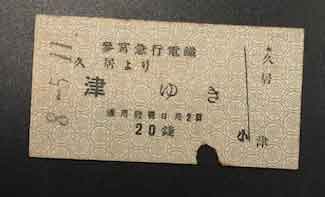 8-5.11
參宮急行電鐵
久居より
津ゆき
通用發行日共2日
20錢
久居
小
津